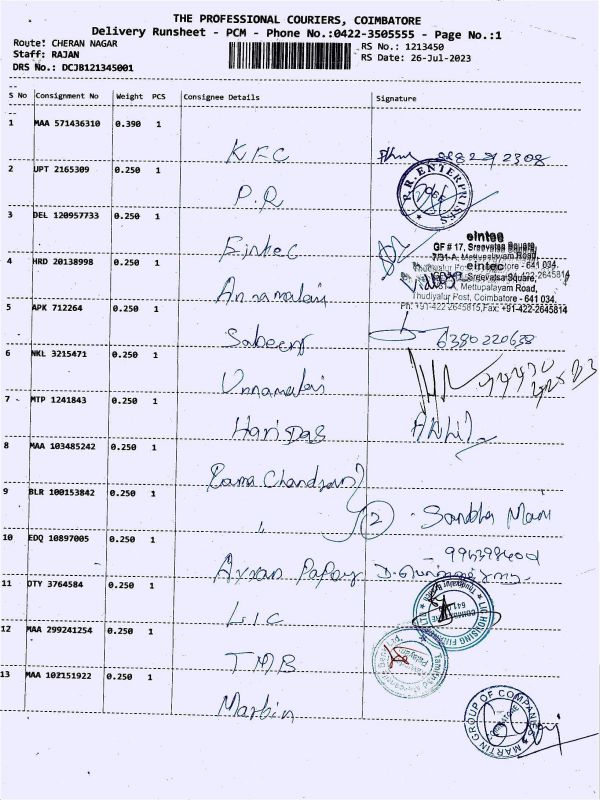 THE PROFESSIONAL COURIERS, COIMBATORE
Delivery Runsheet - PCM - Phone No.:0422-3505555 - Page No.:1
Route: CHERAN NAGAR
Staff: RAJAN
DRS No.: DCJB121345001
RS No.: 1213450
RS Date: 26-Jul-2023
S No Consignment No Weight PCS Consignee Details Signature
1 MAA 571436310 0.390 1
KFC
2 UPT 2165309 0.250 1
P.R
R.R. ENTERPRISES
3 DEL 120957733 0.250 1
Eintec
eintec
GF # 17, Sreevatsa Square,
7/91-A, Mettupalayam Road,
4 HRD 20138998 0.250 1
Annamalai
eintec
Sreevatsa Square,
Mettupalayam Road,
Thudiyalur Post, Coimbatore - 641 034.
Ph: +91-422-2645815,Fax: +91-422-2645814
5 APK 712264 0.250 1
6380220638
6 NKL 3215471 0.250 1
Unnamalai
7 MTP 1241843 0.250 1
Haridas
8 MAA 103485242 0.250 1
Rama Chandran
9 BLR 100153842 0.250 1
"
2
10 EDQ 10897005 0.250 1
11 OTY 3764584 0.250 1
LIC
LIC HOUSING
12 MAA 299241254 0.250 1
TMB
13 MAA 102151922 0.250 1
Martin
MARTIN GROUP OF COMPANIES